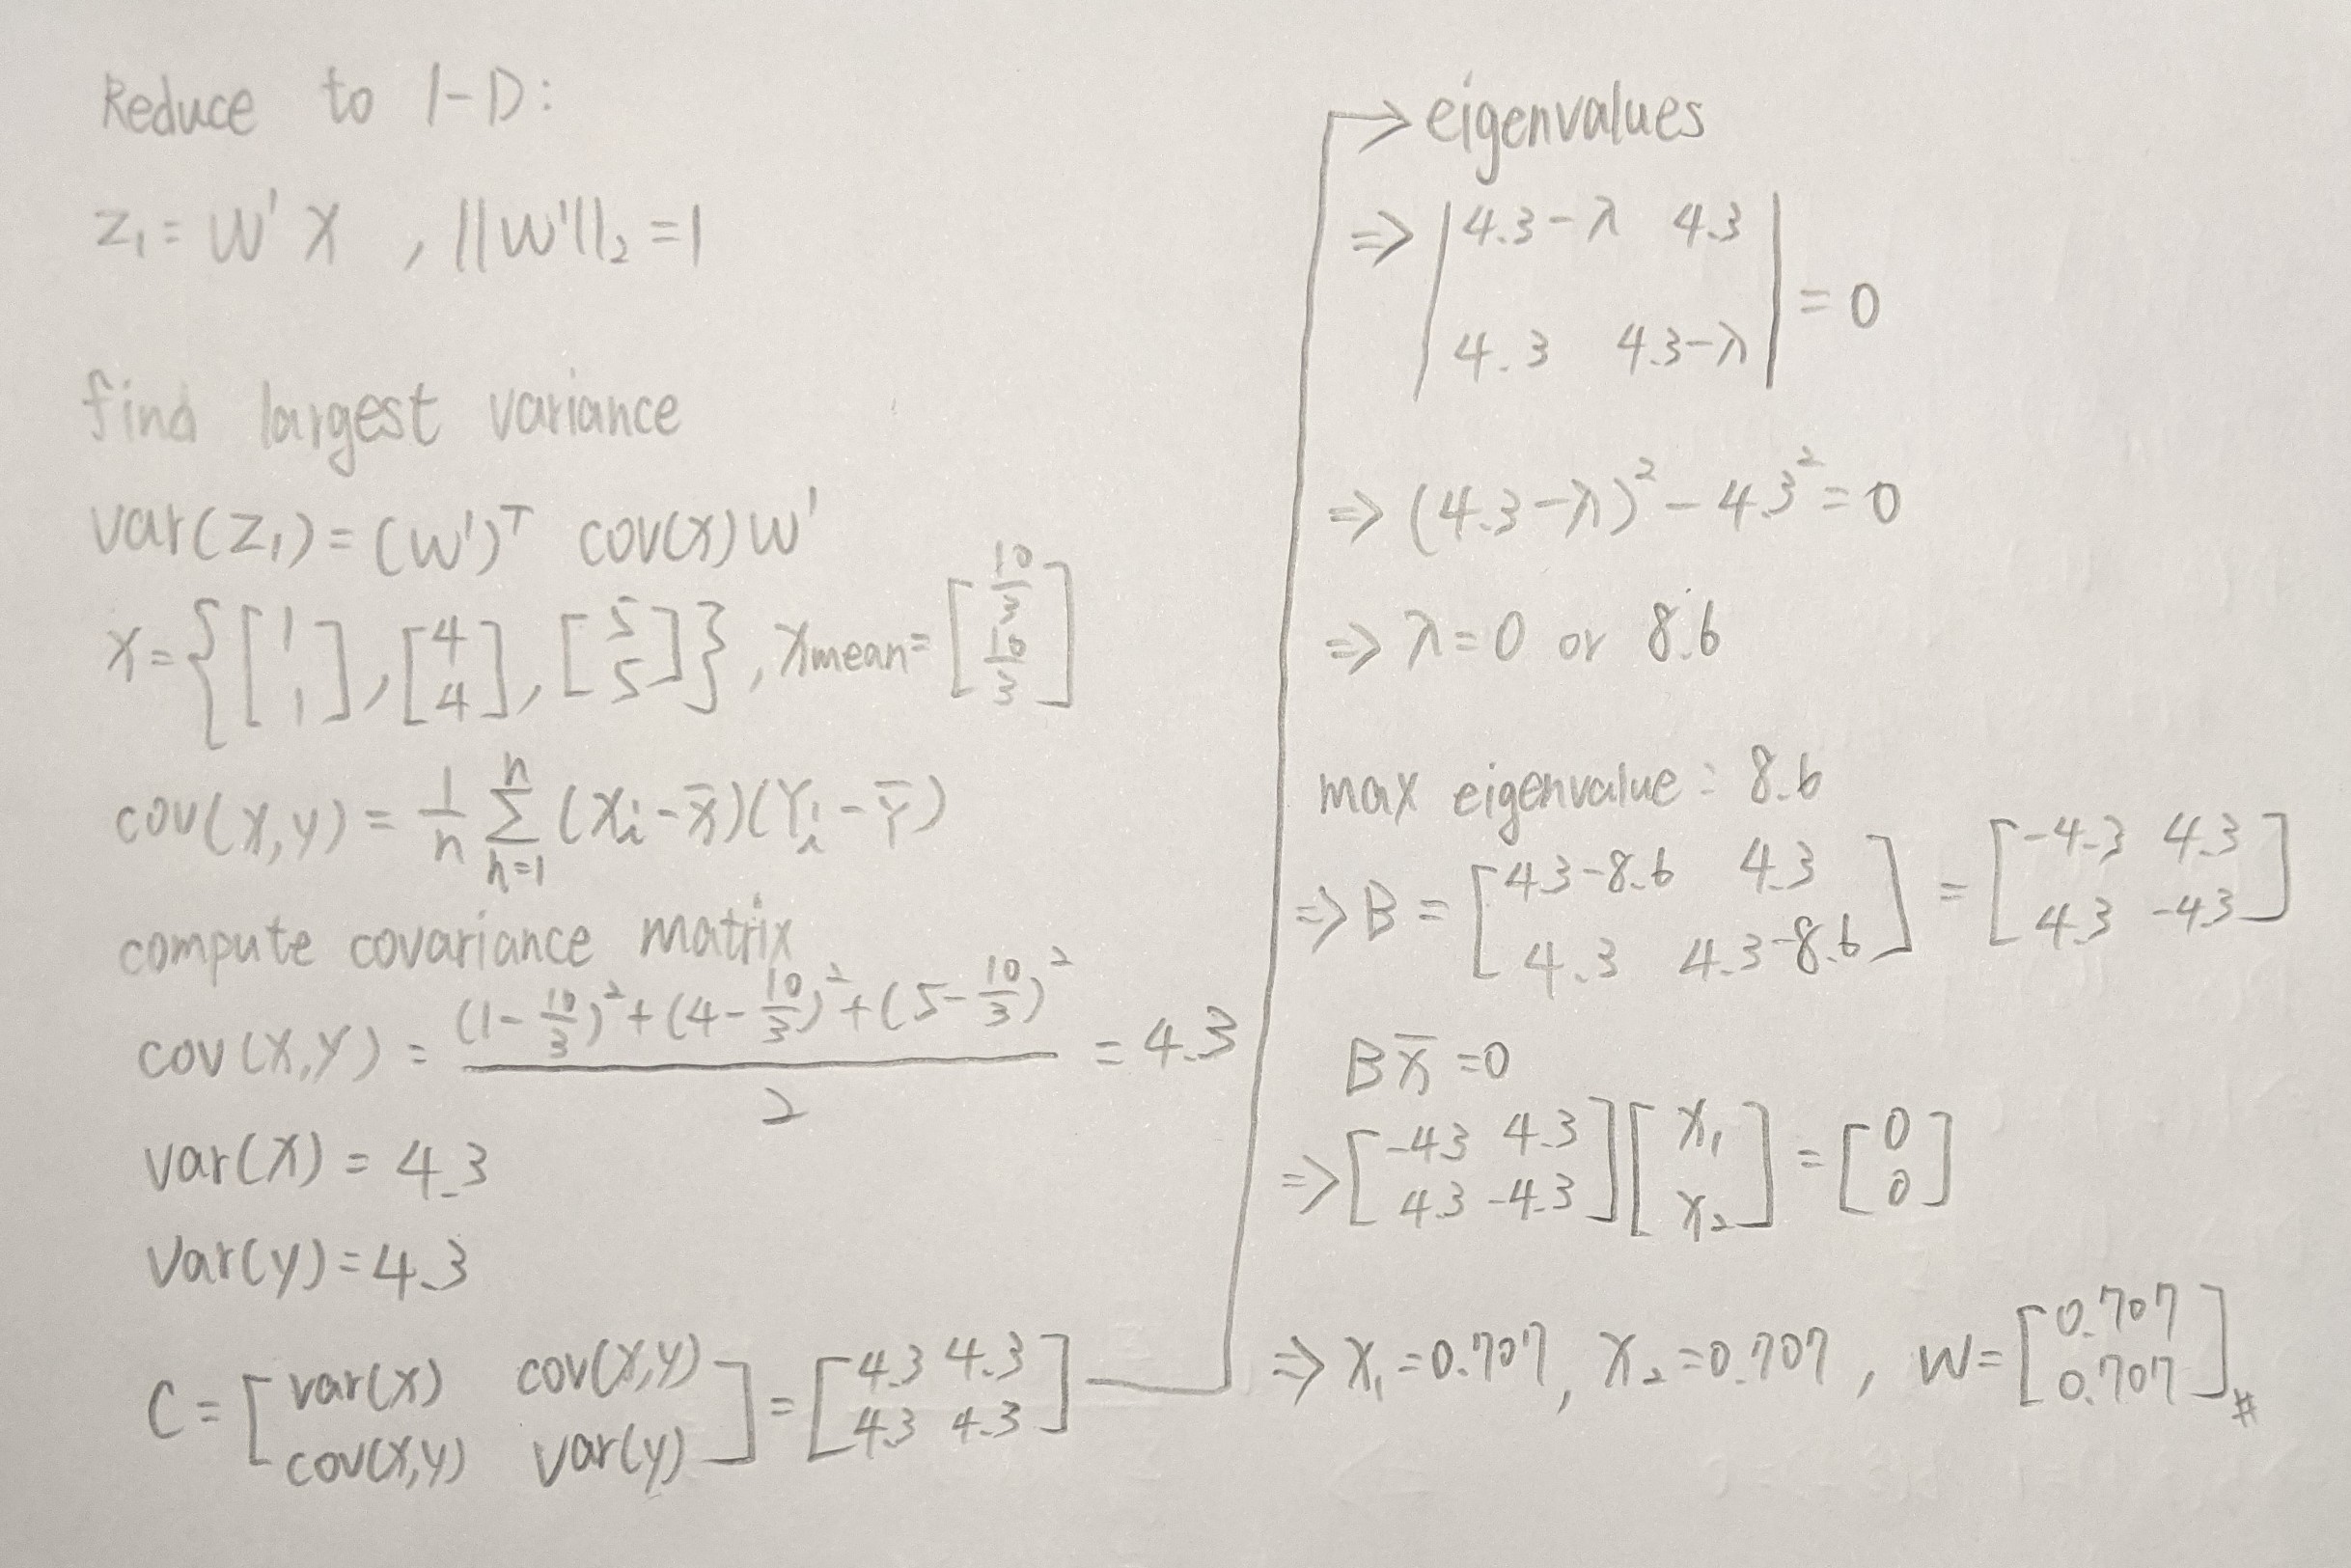 Reduce to 1-D:
z₁ = W' X , ||W'||₂ = 1
find largest variance
var(z₁) = (W')ᵀ cov(x) W'
X = { [1 1], [4 4], [5 5] }, Xmean = [10/3 10/3]
cov(x,y) = 1/n Σ n n=1 (Xi - X̄)(Yi - Ȳ)
compute covariance matrix
cov(x,y) = ((1 - 10/3)² + (4 - 10/3)² + (5 - 10/3)²) / 2 = 4.3
var(x) = 4.3
Var(y) = 4.3
C = [var(x) cov(x,y) cov(x,y) var(y)] = [4.3 4.3 4.3 4.3]
→ eigenvalues
⇒ |4.3-λ 4.3 4.3 4.3-λ| = 0
⇒ (4.3-λ)² - 4.3² = 0
⇒ λ = 0 or 8.6
max eigenvalue : 8.6
⇒ B = [4.3-8.6 4.3 4.3 4.3-8.6] = [-4.3 4.3 4.3 -4.3]
B X̄ = 0
⇒ [-4.3 4.3 4.3 -4.3] [X₁ X₂] = [0 0]
⇒ X₁ = 0.707, X₂ = 0.707, W = [0.707 0.707] #